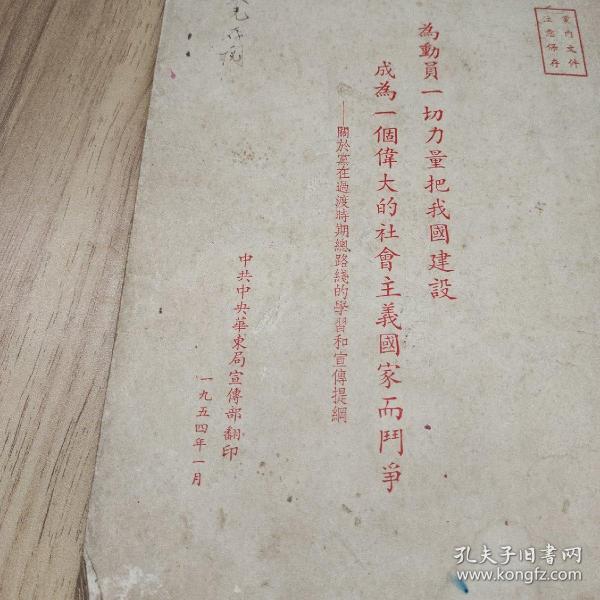 黨內文件
注意保存
為動員一切力量把我國建設
成為一個偉大的社會主義國家而鬥爭
——關於黨在過渡時期總路綫的學習和宣傳提綱
中共中央華東局宣傳部翻印
一九五四年一月
孔夫子旧书网
www.kongfz.com